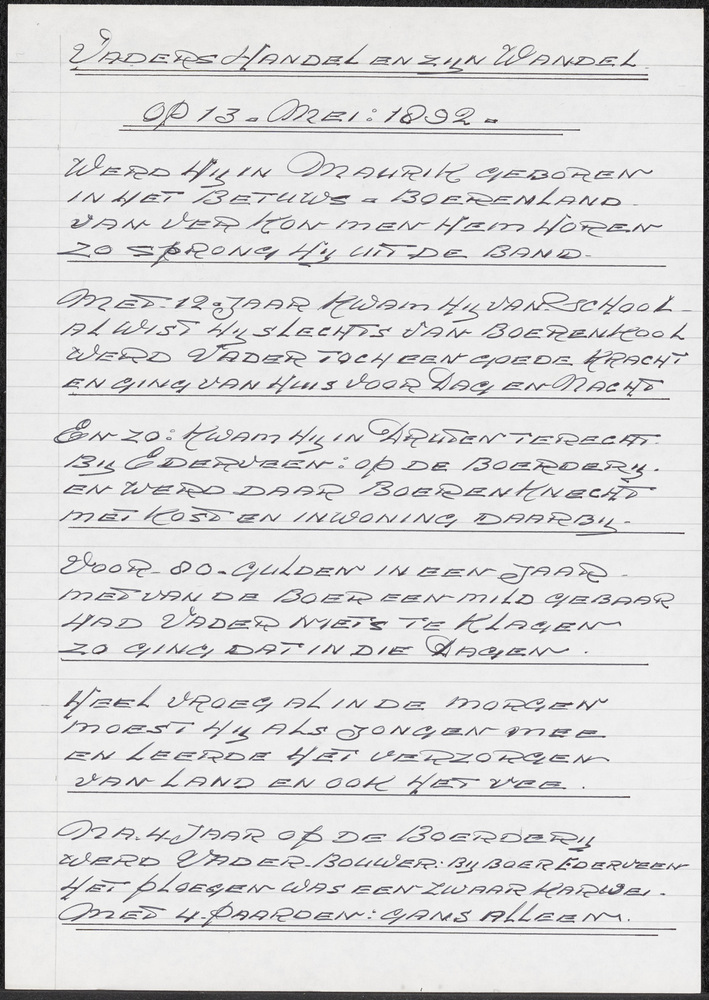 VADERS HANDEL EN ZIJN WANDEL.
OP 13 - MEI: 1892 -
WERD HIJ IN MAURIK GEBOREN
IN HET BETUWS - BOERENLAND
VAN VER KON MEN HEM HOREN
ZO SPRONG HIJ UIT DE BAND -
MET - 12 - JAAR KWAM HIJ VAN SCHOOL -
AL WIST HIJ SLECHTS VAN BOERENKOOL
WERD VADER TOCH EEN GOEDE KRACHT
EN GING VAN HUIS VOOR DAG EN NACHT
EN ZO: KWAM HIJ IN DRUTEN TERECHT.
BIJ EDERVEEN: OP DE BOERDERIJ.
EN WERD DAAR BOERENKNECHT
MET KOST EN INWONING DAARBIJ -
VOOR - 80 - GULDEN IN EEN JAAR -
MET VAN DE BOER EEN MILD GEBAAR
HAD VADER NIETS TE KLAGEN
ZO GING DAT IN DIE DAGEN .
HEEL VROEG AL IN DE MORGEN
MOEST HIJ ALS JONGEN MEE
EN LEERDE HET VERZORGEN
VAN LAND EN OOK HET VEE .
NA. 4 JAAR OP DE BOERDERIJ
WERD VADER - BOUWER: BIJ BOER EDERVEEN
HET PLOEGEN WAS EEN ZWAAR KARWEI -
MET 4 - PAARDEN: GANS ALLEEN.